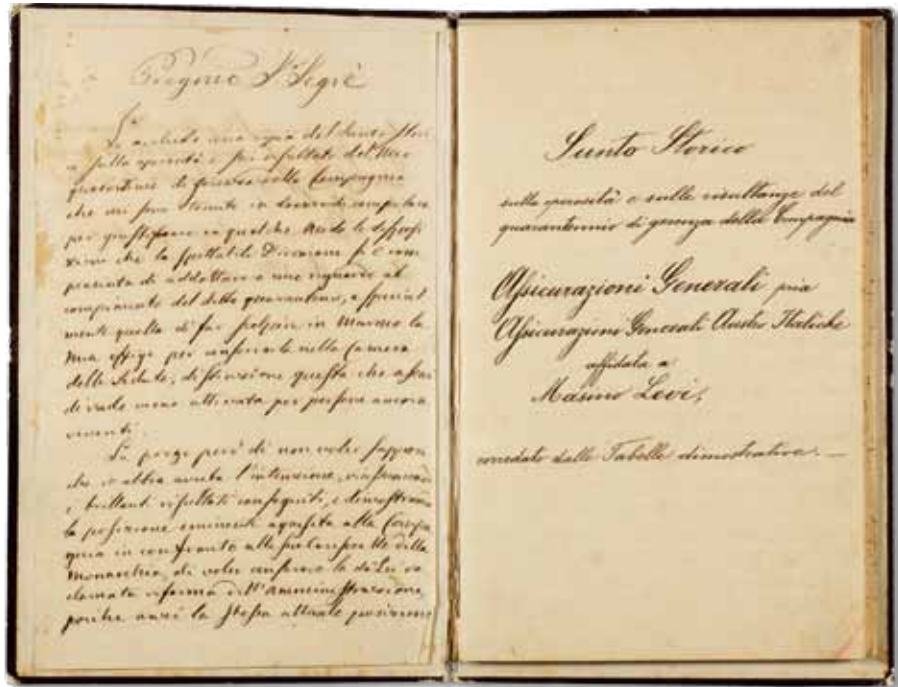 Pregmo Sr Segrè
Le accludo una copia del Sunto Stori
co sulla operosità e sui risultati del mio
quarantennio di gerenza della Compagnia
che mi sono tenuto in dovere di compilare
per giustificare in qualche modo le disposi
zioni che la spettabile Direzione si è com
piaciuta di addottare a mio riguardo al
compimento del detto quarantennio, e special
mente quella di far scolpire in marmo la
mia effige per conservarla nella Camera
delle Sedute, distinzione questa che assai
di rado viene attivata per persone ancora
viventi.
La prego però di non voler suppor
che io abbia avuta l'intenzione,
i brillanti risultati conseguiti, e dimostrando
la posizione eminente acquisita alla Compa
gnia in confronto alle sue Consorelle della
Monarchia, di voler da Lei re
clamata riforma dell'Amministrazione,
poiché anzi la stessa attuale posizione
Sunto Storico
sulla operosità e sulle risultanze del
quarantennio di gerenza della Compagnia
Assicurazioni Generali pria
Assicurazioni Generali Austro Italiche
affidata a
Masino Levi,
corredato dalle Tabelle dimostrative. —